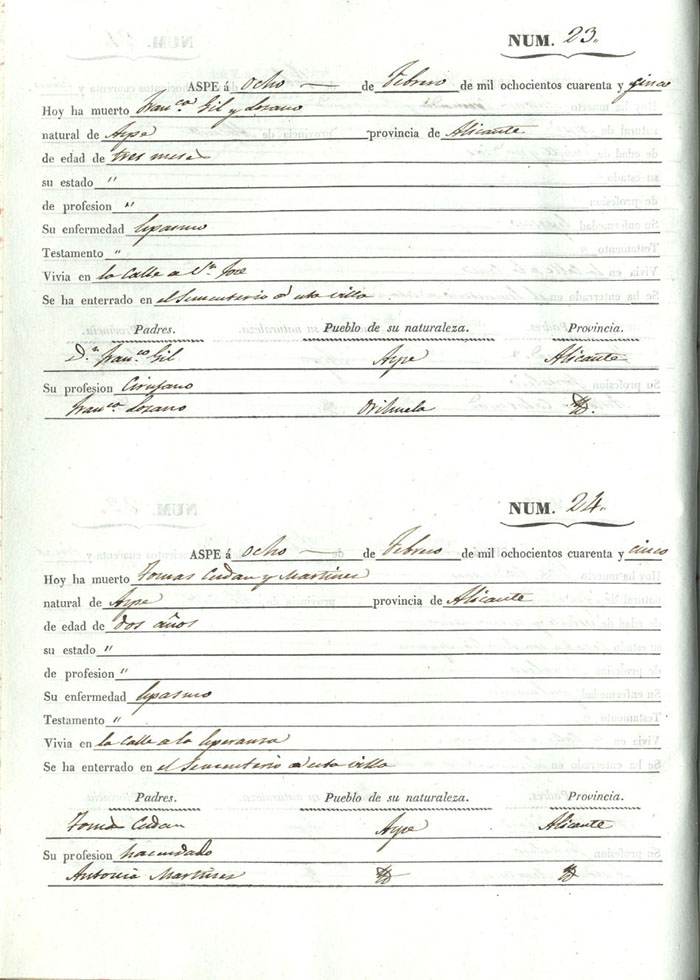 NUM. 23.
ASPE á ocho de Febrero de mil ochocientos cuarenta y cinco
Hoy ha muerto Fran.co Gil y Lozano
natural de Aspe provincia de Alicante
de edad de tres meses
su estado "
de profesion "
Su enfermedad Espasmo
Testamento "
Vivia en la Calle a Sn. Jose
Se ha enterrado en el Sementerio d esta villa
Padres. Pueblo de su naturaleza. Provincia.
Dn. Fran.co Gil Aspe Alicante
Su profesion Cirujano
Fran.ca Lozano Orihuela Yd.
NUM. 24.
ASPE á ocho de Febrero de mil ochocientos cuarenta y cinco
Hoy ha muerto Tomas Cudan y Martines
natural de Aspe provincia de Alicante
de edad de dos años
su estado "
de profesion "
Su enfermedad Espasmo
Testamento "
Vivia en la Calle a la Esperansa
Se ha enterrado en el Sementerio d esta villa
Padres. Pueblo de su naturaleza. Provincia.
Tomas Cudan Aspe Alicante
Su profesion hacendado
Antonia Martines Yd Yd